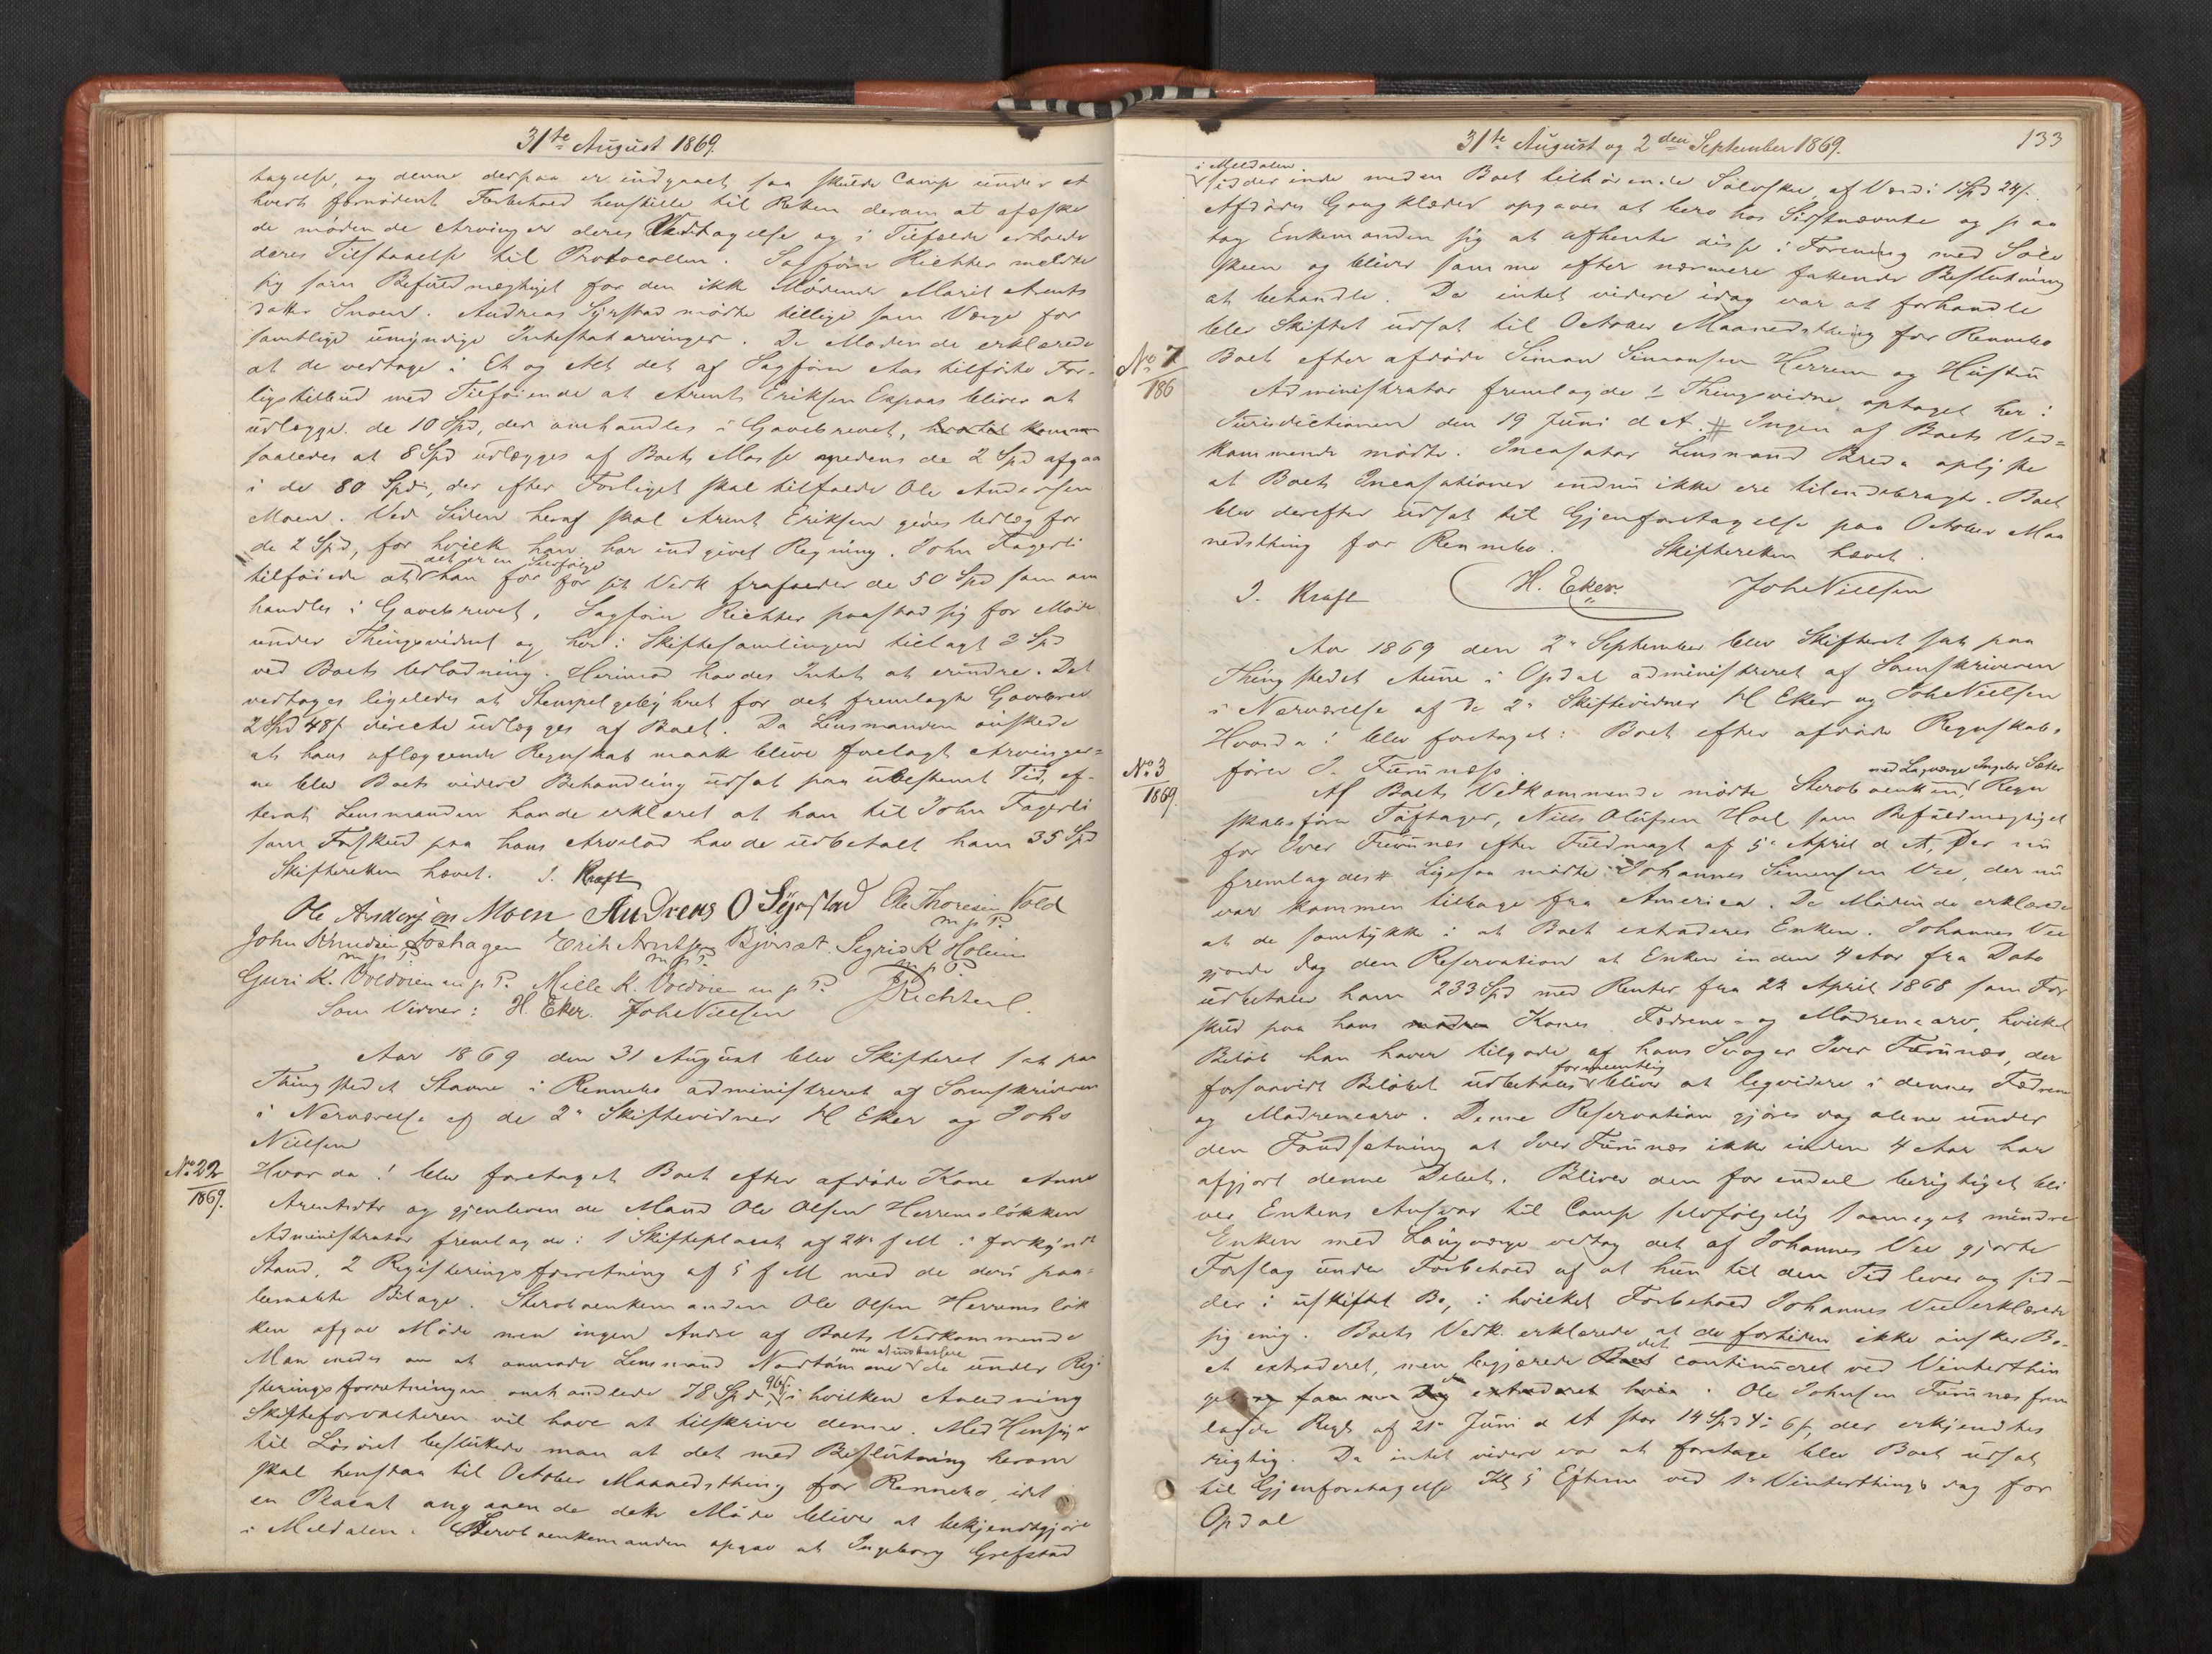 31te August 1869.
tagelse, og denne derpaa er indgaaet saa skulde Camp under et
hvert fornødent Forbehold henstille til Retten derom at afæske
de mødende Arvinger deres Vedtagelse og i Tilfælde erholde
deres Tilstaaelse til Protocollen. Sagfører Richter meldte
sig som Befuldmægtiget for den ikke Mødende Marit Arnts
datter Snoen. Andreas Syrstad mødte tillige som Værge for
samtlige umyndige Intestatarvinger. De Mødende erklærede
at de vedtage i Et og Alt det af Sagfører Aas tilførte For-
ligstilbud med Tilføiende at Arent Eriksen Espaas bliver at
udlægge de 10 Spd, der omhandles i Gavebrevet,
saaledes at 8 Spd udlægges af Boets Masse medens de 2 Spd afgaa
i de 80 Spd, der efter Forliget skal tilfalde Ole Andersen
Moen. Ved Siden heraf skal Arent Eriksen gives Udlæg for
de 2 Spd, for hvilke han har indgivet Regning. John Fagerli
tilføiede at han for sit Vedk. frafalder de 50 Spd som om
handles i Gavebrevet. Sagfører Richter paastod sig for Møde
under Thingsvidnet og her i Skiftesamlingen tillagt 3 Spd
ved Boets Udlodning. Herimod havdes Intet at erindre. Det
vedtages ligeledes at Stempelgebyhret for det fremlagte Gavebrev
2 Spd 48 s directe udlægges af Boet. Da Lensmanden ønskede
at hans aflæggende Regnskab maatte blive forelagt Arvinger-
ne blev Boets videre Behandling udsat paa ubestemt Tid, ef-
terat Lensmanden havde erklæret at han til John Fagerli
som Forskud paa hans Arvelod havde udbetalt ham 35 Spd
Skifteretten hævet. J. Kraft
Ole Andersen Moen Andreas O Syrstad Ole Thoresen Vold
m p P.
John Knudsen Aoshagen Erik Arntsen Bjørset. Sigrid K Holum
m p P. m p P. m p P.
Guri K. Voldveien m p P. Mille K. Voldveien m p P. Richter.
Som Vidner: H. Eker. Johs Nielsen
Aar 1869 den 31 August blev Skifteret sat paa
Thingstedet Stavne i Rennebo administreret af Sorenskriveren
i Nærværelse af de 2de Skiftevidner H Eker og Johs
Nielsen
No 22
1869.
Hvorda! blev foretaget Boet efter afdøde Kone Anne
Arentsdtr og gjenlevende Mand Ole Olsen Herremsløkken
Administrator fremlagde: 1 Skifteplacat af 24de f M i forkyndt
Stand, 2 Registreringsforretning af 5 f M med de deri paa-
beraabte Bilage. Sterboenkemanden Ole Olsen Herremsløk
ken afgav Møde men ingen Andre af Boets Vedkommende
Man enedes om at anmode Lensmand Nordtømme om at indkassere de under Regi-
streringsforretningen omhandlede 78 Spd 96 s, i hvilken Anledning
Skifteforvalteren vil have at tilskrive denne. Med Hensyn
til Løsøret besluttede man at det med Beslutning herom
skal henstaa til October Maanedsthing for Rennebo, idet
en Placat angaaende dette Møde bliver at bekjendtgjøre
i Meldalen. Sterboenkemanden opgav at Ingeborg Grefstad
31te August og 2den September 1869.
133
i Meldalen
sidder inde med en Boet tilhørende Sølvskee af Værdi 1 Spd 24 s.
Afdødes Gangklæder opgaves at bero hos Sidstnævnte og paa
tog Enkemanden sig at afhente disse i Forening med Sølv
skeen og bliver samme efter nærmere fattende Beslutning
at behandle. Da intet videre idag var at forhandle
blev Skiftet udsat til October Maanedsthing for Rennebo
No 7
186
Boet efter afdøde Simon Simonsen Herrem og Hustru
Administrator fremlagde 1 Thingsvidne optaget her i
Jurisdictionen den 19 Juni d A. # Ingen af Boets Ved-
kommende mødte. Incasator Lensmand Breda oplyste
at Boets Incasationer endnu ikke ere tilendebragte. Boet
blev derefter udsat til Gjenforetagelse paa October Maa
nedsthing for Rennebo. Skifteretten hævet.
J. Kraft H. Eker. Johs Nielsen
Aar 1869 den 2de September blev Skifteret sat paa
Thingstedet Aune i Opdal administreret af Sorenskriveren
i Nærværelse af de 2de Skiftevidner H Eker og Johs Nielsen
Hvorda! blev foretaget: Boet efter afdøde Regnskabs
No 3
1869.
fører J. Furunæs.
Af Boets Vedkommende mødte Sterboenken med Laugværge Ingebr Sæter, Regn
skabsfører Tøftager, Niels Olufsen Hoel som Befuldmægtiget
for Iver Furunæs efter Fuldmagt af 5te April d A, der nu
fremlagdes # Ligesaa mødte Johannes Simensen Vee, der nu
var kommen tilbage fra America. De Mødende erklærede
at de samtykke i at Boet extraderes Enken. Johannes Vee
gjorde dog den Reservation at Enken inden 4 Aar fra Dato
udbetaler ham 233 Spd med Renter fra 22 April 1868 som For
skud paa hans Kones Fædrene- og Mødrenearv, hvilket
Beløb han haver tilgode af hans Svoger Iver Furunæs, der
forsaavidt Beløbet udbetales formentlig bliver at liqvidere i dennes Fædrene
og Mødrenearv. Denne Reservation gjøres dog alene under
den Forudsætning at Iver Furunæs ikke inden 4 Aar har
afgjort denne Debet. Bliver den for endeel berigtiget bli
ver Enkens Ansvar til Camp selvfølgelig saameget mindre
Enken med Laugværge vedtog det af Johannes Vee gjorte
Forslag under Forbehold af at hun til den Tid lever og sid-
der i uskiftet Bo, i hvilket Forbehold Johannes Vee erklærede
sig enig. Boets Vedk. erklærede at de fortiden ikke ønsker Bo-
et extraderet, men begjærede det continueret ved Vinterthin
get. Ole Johnsen Furunæs frem
lagde Regn af 21de Juni d A stor 14 Spd 4 6 s, der erkjendtes
rigtig. Da intet videre var at foretage blev Boet udsat
til Gjenforetagelse Kl 5 Efterm ved 1ste Vinterthings dag for
Opdal